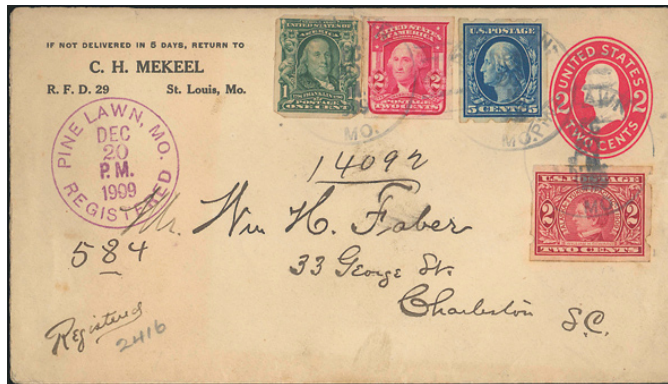 IF NOT DELIVERED IN 5 DAYS, RETURN TO
C. H. MEKEEL
R. F. D. 29 St. Louis, Mo.
PINE LAWN, MO.
DEC
20
P.M.
1909
REGISTERED
UNITED STATES OF AMERICA
1 1
FRANKLIN
POSTAGE
ONE CENT
UNITED STATES OF AMERICA
2 2
POSTAGE
TWO CENTS
U.S. POSTAGE
5 CENTS 5
UNITED STATES
2 2
TWO CENTS
MO.
MO.
U.S. POSTAGE
2 2
TWO CENTS
14092
Mr. Wm H. Faber
584
33 George St.
Charleston S.C.
Registered
2416